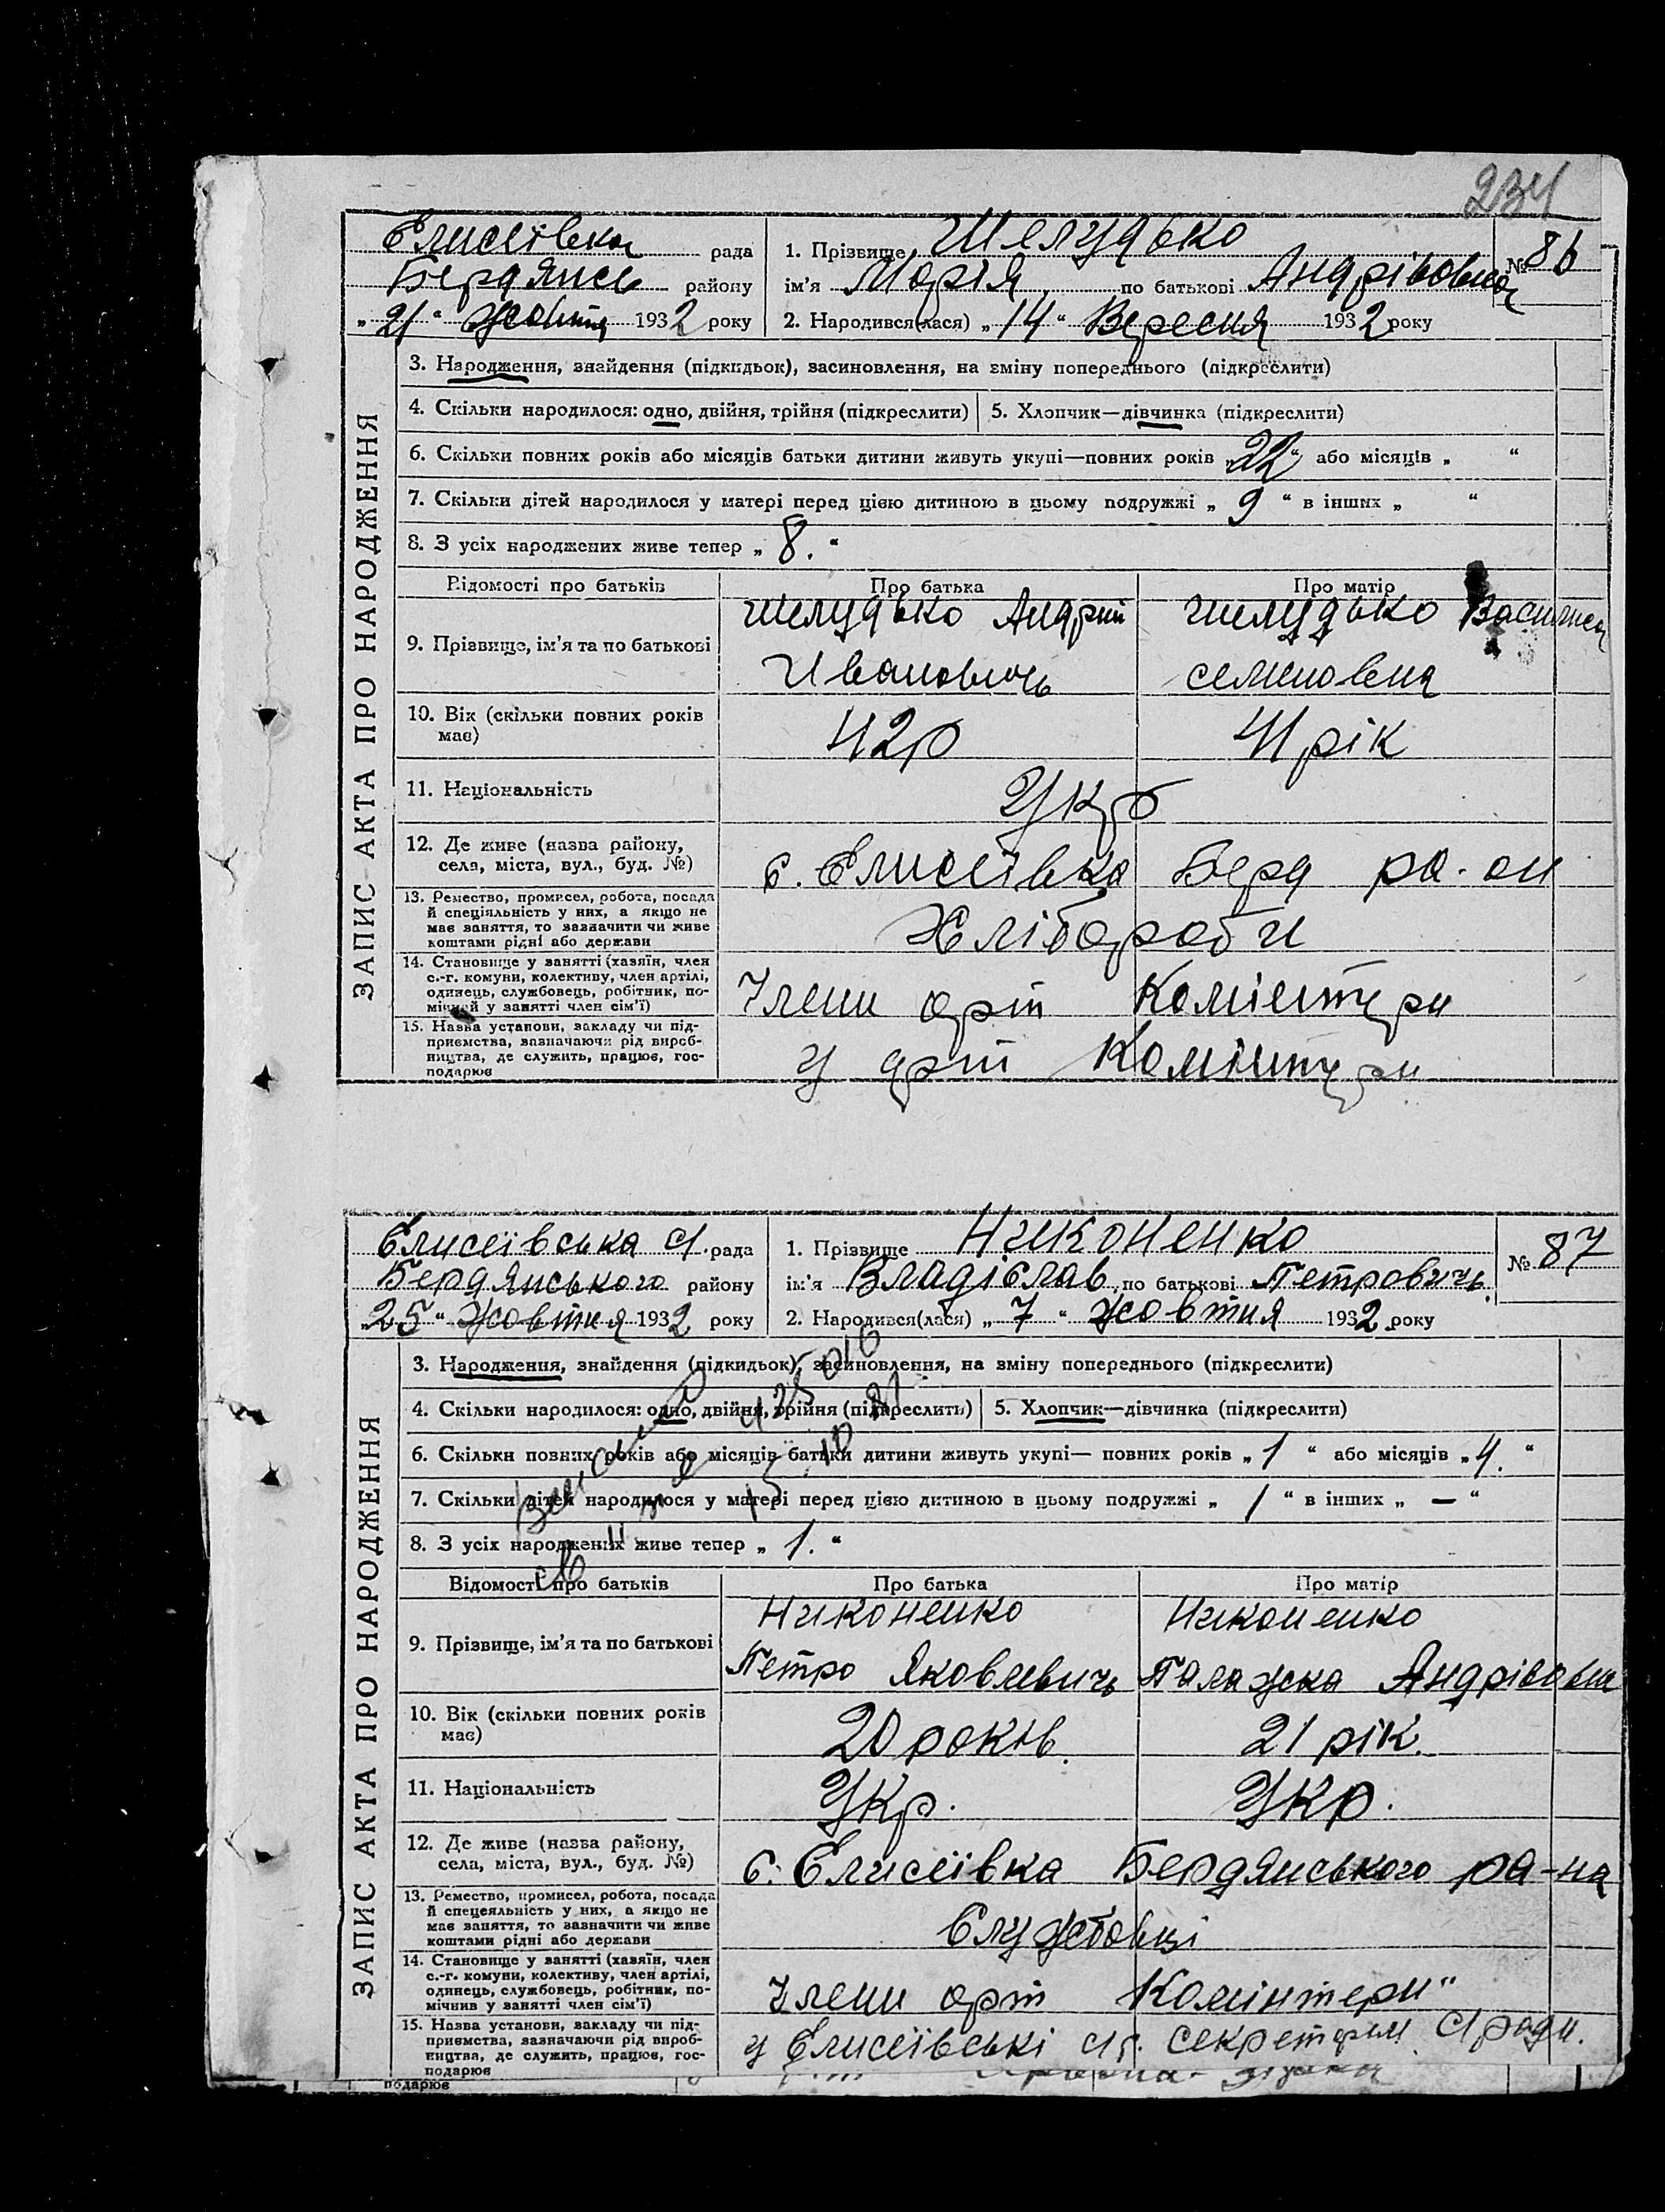 234
Елисеївка рада
Бердянсь району
„ 21 “ жовтня 1932 року
1. Прізвище Шелудько
№ 86
ім’я Марія по батькові Андрівовна
2. Народився(лася) „ 14 “ Вересня 1932 року
ЗАПИС АКТА ПРО НАРОДЖЕННЯ
3. Народження, знайдення (підкидьок), засиновлення, на зміну попереднього (підкреслити)
4. Скільки народилося: одно, двійня, трійня (підкреслити) 5. Хлопчик—дівчинка (підкреслити)
6. Скільки повних років або місяців батьки дитини живуть укупі—повних років „ 22 “ або місяців „ “
7. Скільки дітей народилося у матері перед цією дитиною в цьому подружжі „ 9 “ в інших „ “
8. З усіх народжених живе тепер „ 8. “
Відомості про батьків Про батька Про матір
9. Прізвище, ім’я та по батькові
Шелудько Андрій
Ивановичь
Шелудько Василиса
семеновна
10. Вік (скільки повних років
має)
42 р
41 рік
11. Національність
Укр
12. Де живе (назва району,
села, міста, вул., буд. №)
с. Елисеївка Берд ра-он
13. Ремество, промисел, робота, посада
й спеціяльність у них, а якщо не
має заняття, то зазначити чи живе
коштами рідні або держави
Хлібороби
14. Становище у занятті (хазяїн, член
с.-г. комуни, колективу, член артілі,
одинець, службовець, робітник, по-
мічний у занятті член сім’ї)
Члени арт Комінтерн
15. Назва установи, закладу чи під-
приємства, зазначаючи рід вироб-
ництва, де служить, працює, гос-
подарює
у арт Комінтерн
Елисеївська С. рада
Бердянського району
„ 25 “ жовтня 1932 року
1. Прізвище Никоненко
№ 87
ім’я Владіслав по батькові Петровичь.
2. Народився(лася) „ 7 “ жовтня 1932 року
ЗАПИС АКТА ПРО НАРОДЖЕННЯ
3. Народження, знайдення (підкидьок), засиновлення, на зміну попереднього (підкреслити)
4. Скільки народилося: одно, двійня, трійня (підкреслить) 5. Хлопчик—дівчинка (підкреслити)
6. Скільки повних років або місяців батьки дитини живуть укупі— повних років „ 1 “ або місяців „ 4. “
7. Скільки дітей народилося у матері перед цією дитиною в цьому подружжі „ 1 “ в інших „ — “
8. З усіх народжених живе тепер „ 1. “
Відомості про батьків Про батька Про матір
9. Прізвище, ім’я та по батькові
Никоненко
Петро Яковлевичь
Никоненко
Палажка Андрівовна
10. Вік (скільки повних років
має)
20 років.
21 рік.
11. Національність
Укр.
Укр.
12. Де живе (назва району,
села, міста, вул., буд. №)
с. Елисеївка Бердянського ра-на
13. Ремество, промисел, робота, посада
й спецеяльність у них, а якщо не
має заняття, то зазначити чи живе
коштами рідні або держави
Службовці
14. Становище у занятті (хазяїн, член
с.-г. комуни, колективу, член артілі,
одинець, службовець, робітник, по-
мічнив у занятті член сім’ї)
Члени арт Комінтерн“
15. Назва установи, закладу чи під-
приємства, зазначаючи рід вироб-
ництва, де служить, працює, гос-
подарює
у Елисеївські с.р. секретарем С/ради.
подарює